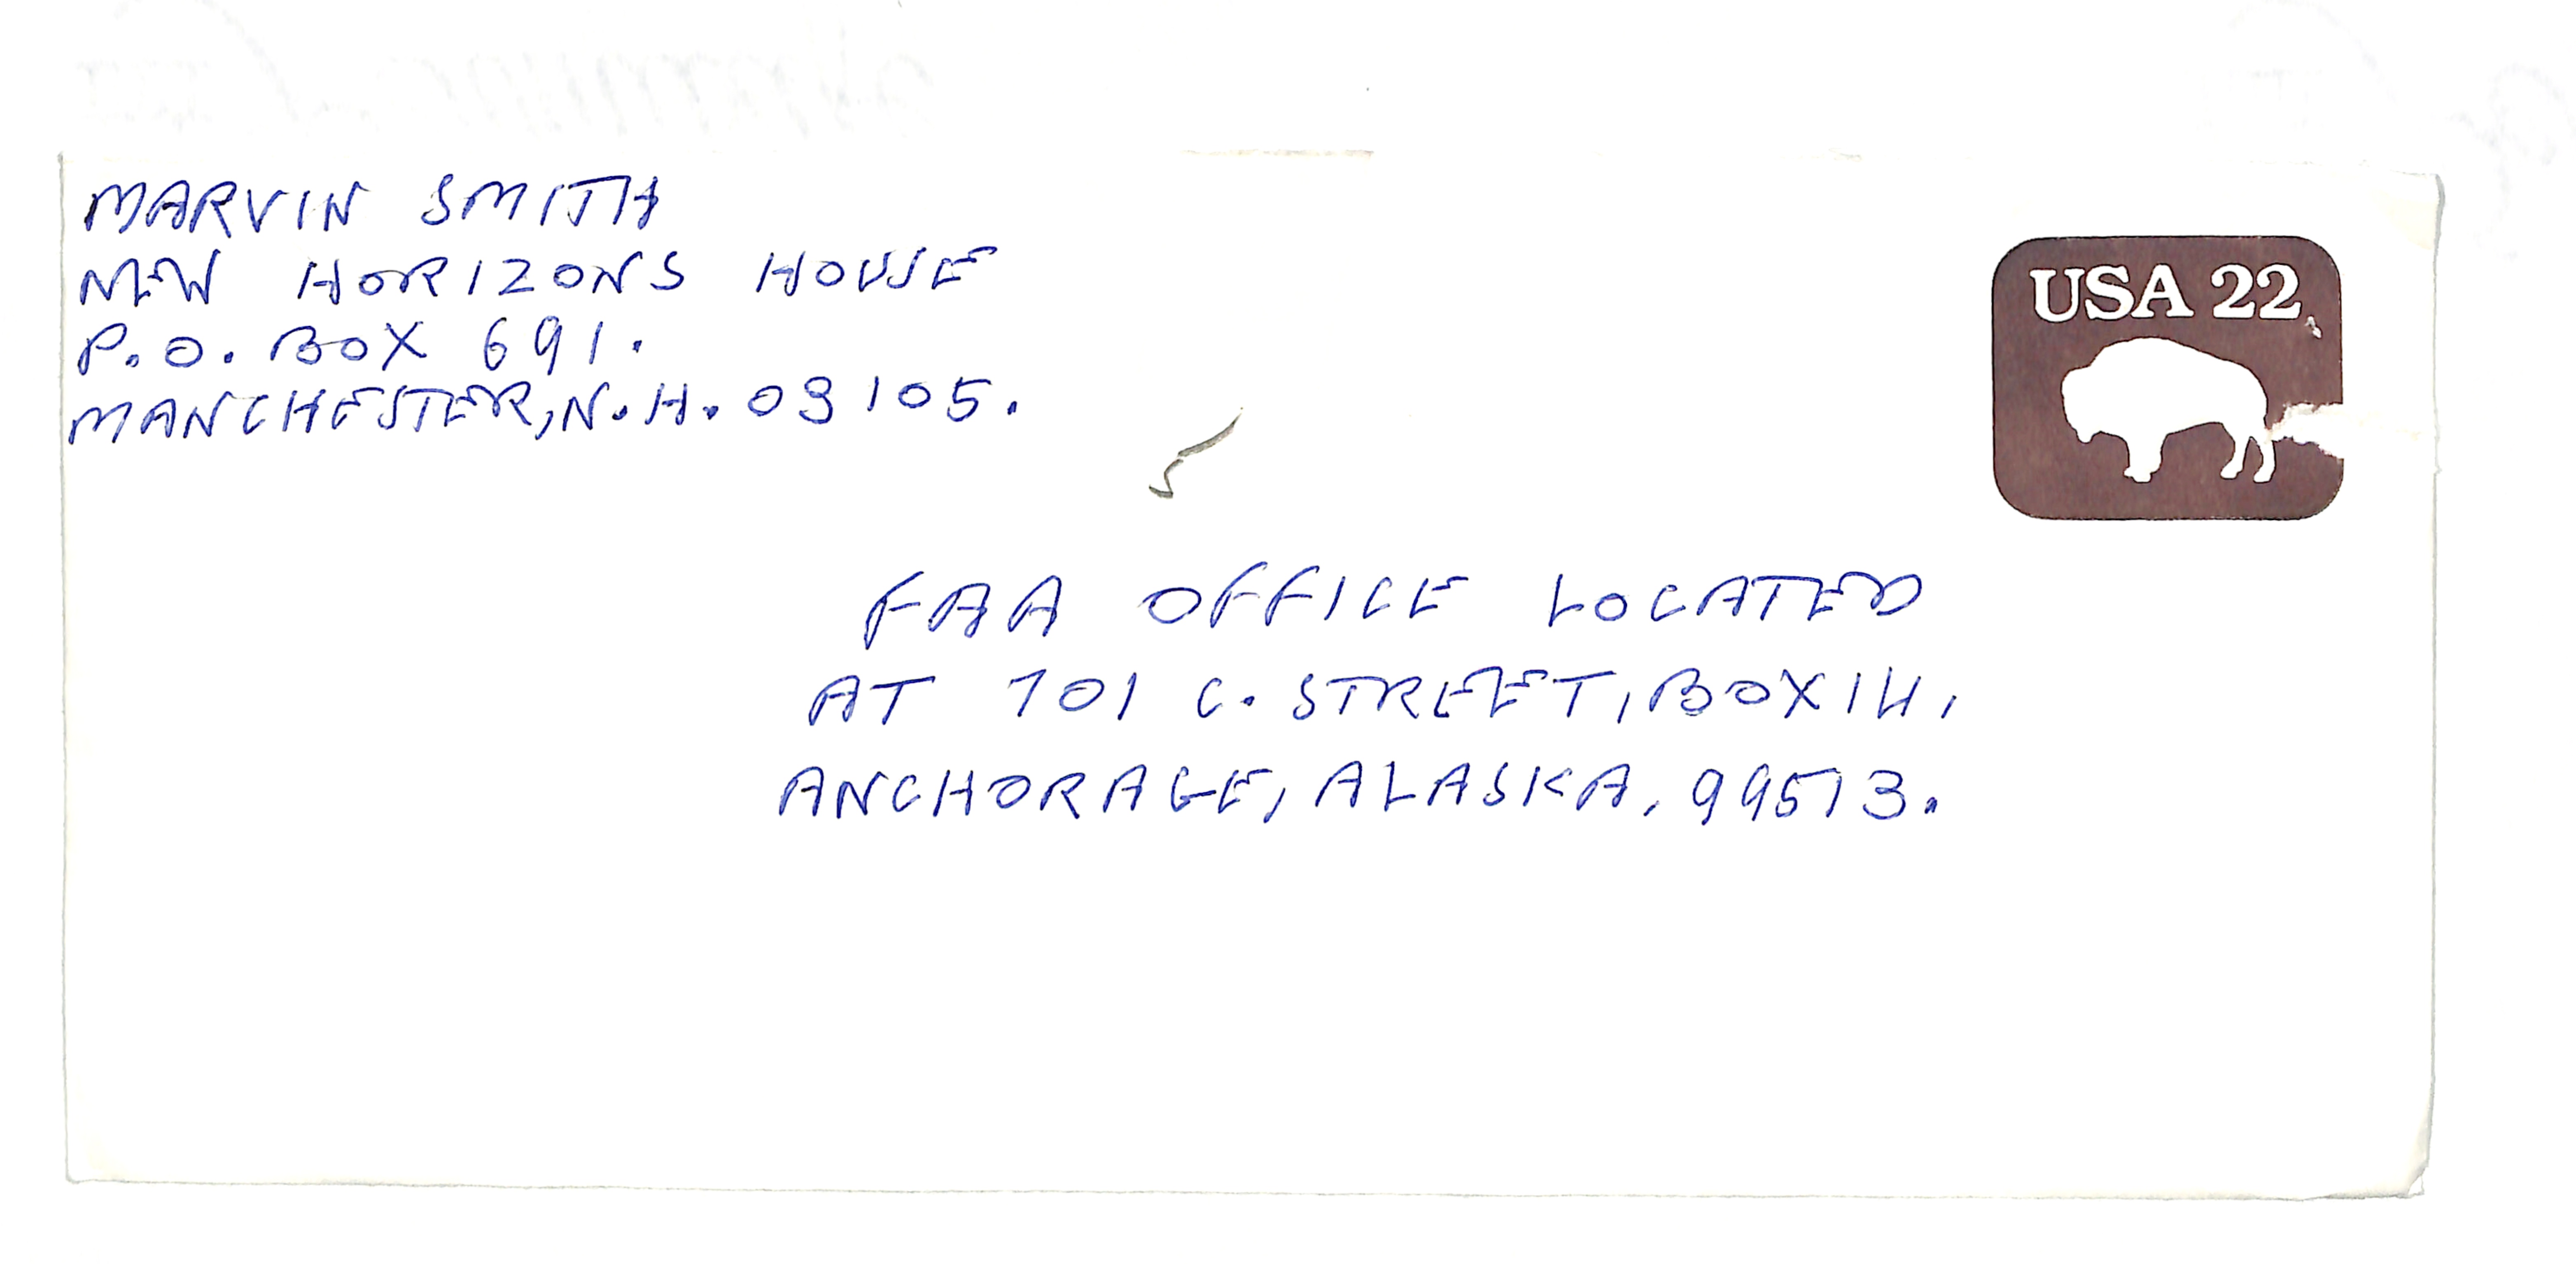 MARVIN SMITH
NEW HORIZONS HOUSE
P.O. BOX 691.
MANCHESTER, N.H. 03105.
USA 22
FAA OFFICE LOCATED
AT 701 C. STREET, BOX 14,
ANCHORAGE, ALASKA, 99513.